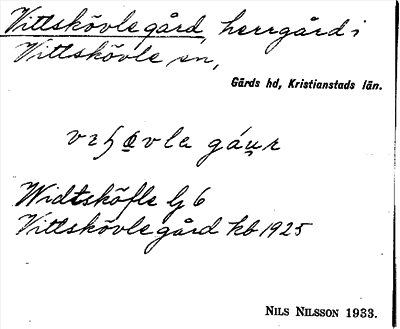 Vittskövle gård, herrgård i
Vittskövle sn,
Gärds hd, Kristianstads län.
gáu̯r
Widtsköfle Lj 6
Vittskövle gård kb 1925
NILS NILSSON 1933.